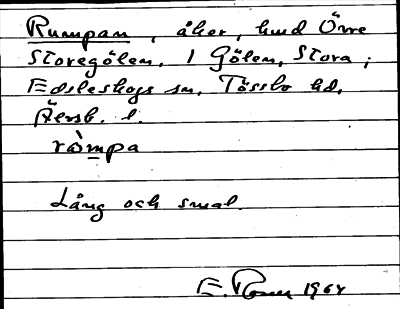 Rumpan, åker, hmd Övre
Storegölen, 1 Gölen, Stora;
Edsleskogs sn, Tössbo hd,
Älvsb. l.
ròmpa
Lång och smal.
E. 1964